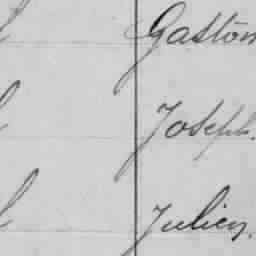 Gaston
Joseph.
Julien.